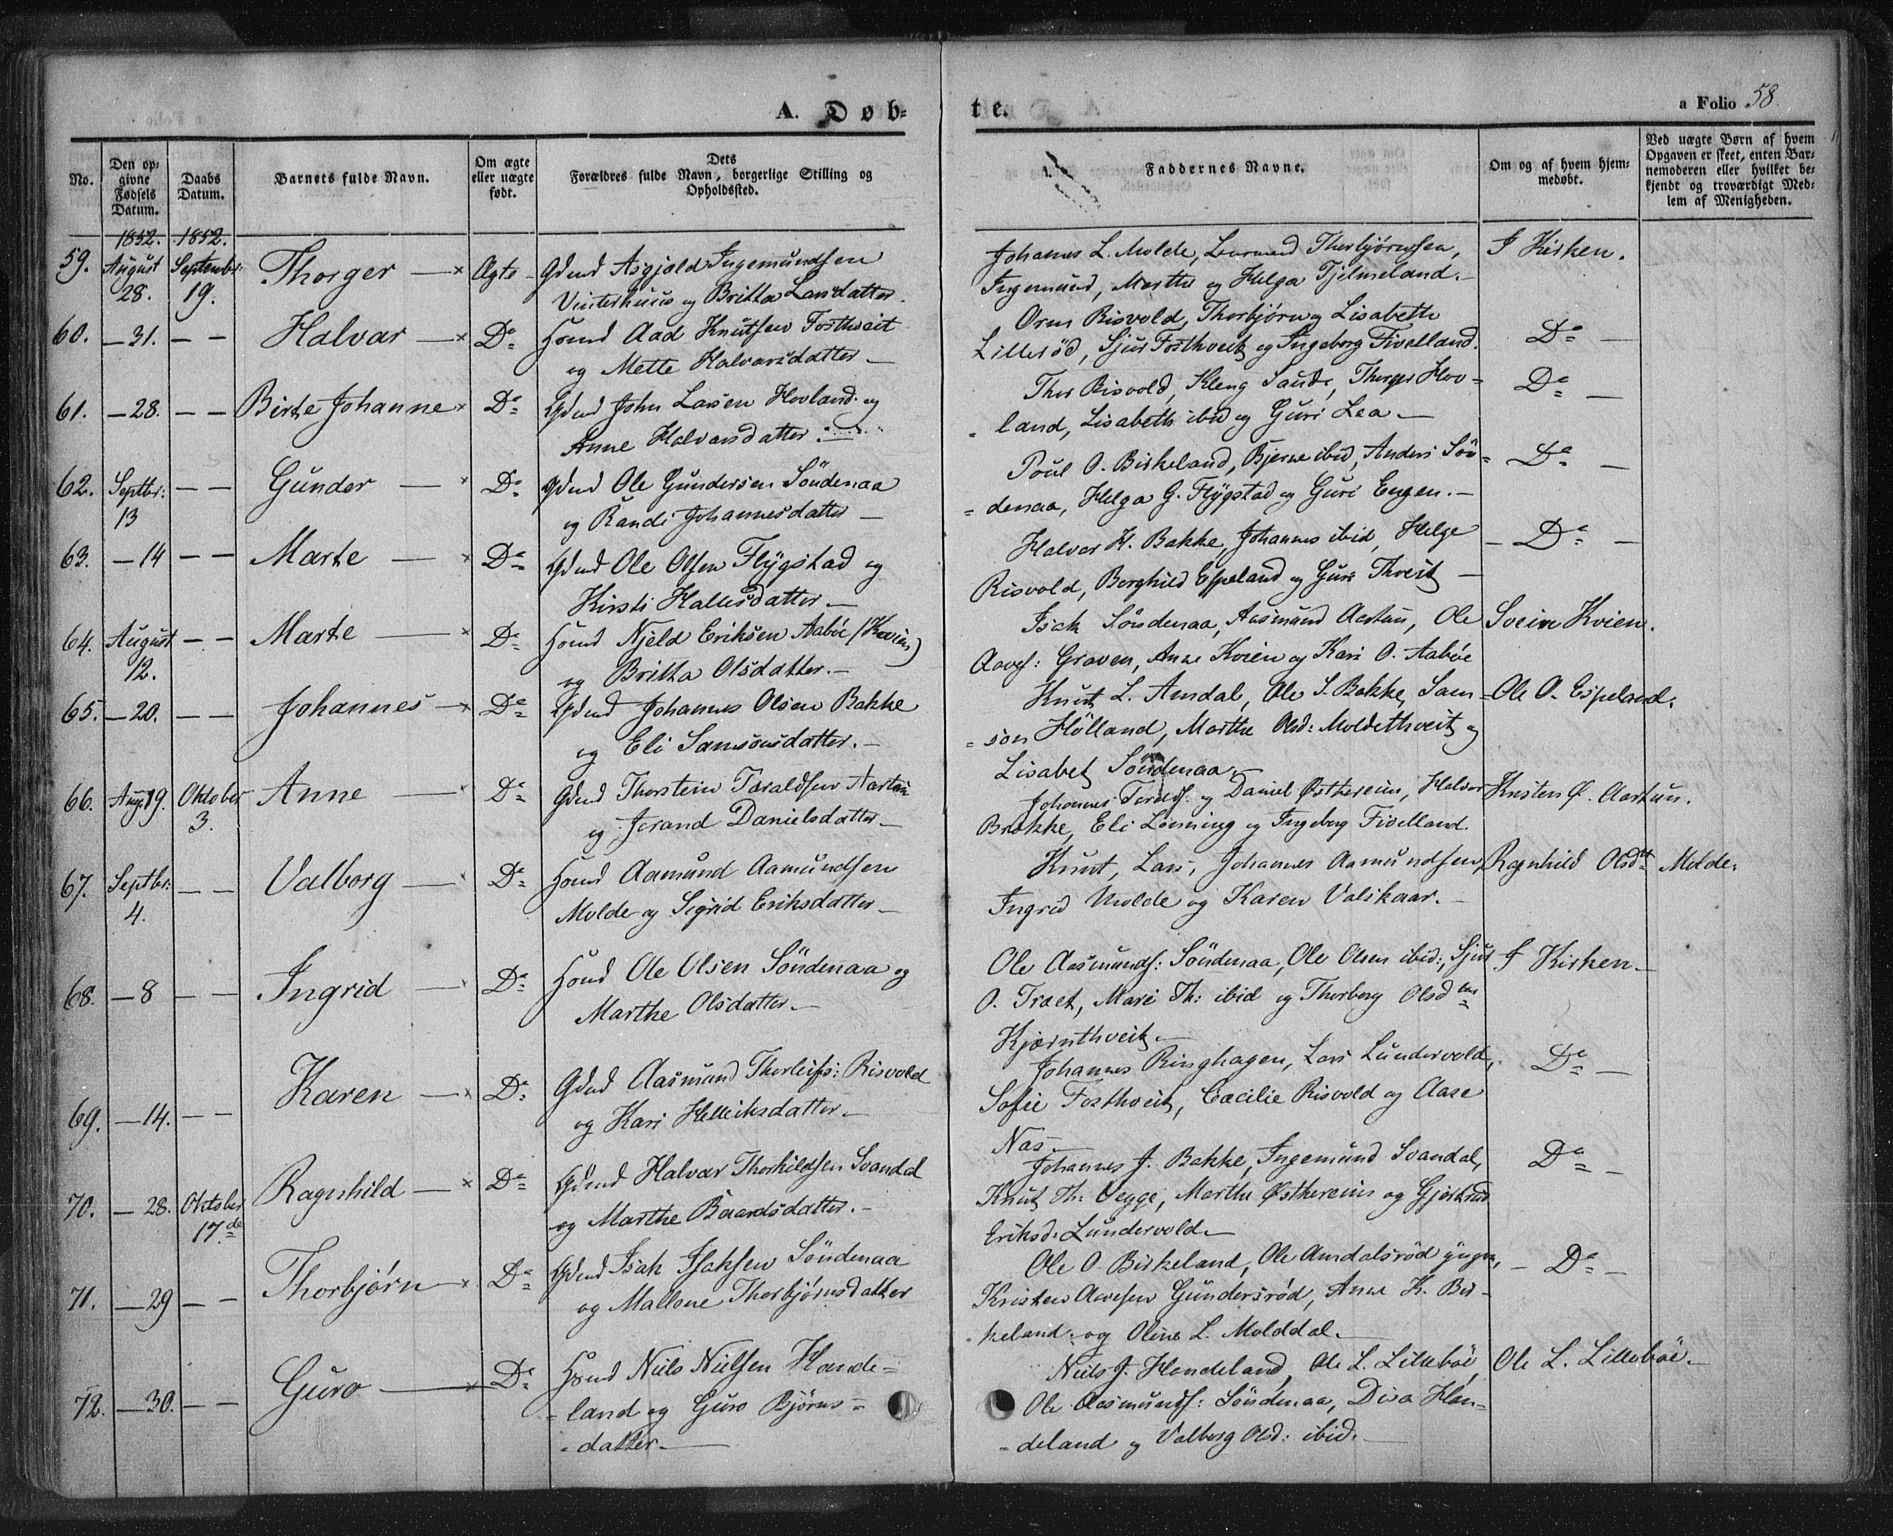 A. Døb-
te.
a Folio 58.
No.
Den op-
givne
Fødsels
Datum.
Daabs
Datum.
Barnets fulde Navn.
Om ægte
eller uægte
født.
Dets
Forældres fulde Navn, borgerlige Stilling og
Opholdssted.
Faddernes Navne.
Om og af hvem hjem-
medøbt.
Ved uægte Børn af hvem
Opgaven er skeet, enten Bar-
nemoderen eller hvilket be-
kjendt og troværdigt Med-
lem af Menigheden.
1852. 1852.
59. August 28. September 19. Thorger Ægte Gdmd Asgjeld Ingemundsen
Vinterhuus og Britta Larsdatter.
Johannes L. Molde, Thorbjørnsen,
Ingemund, Marthe og Helga Tjelmeland.
I Kirken.
60. 31. Halvar Do Huusmd Aad Knutsen Fosthveit
og Mette Halvarsdatter
Orm Risvold, Thorbjørn og Lisabeth
Lillerød, Sjur Fosthveit og Ingeborg Fivelland.
Do
61. 28. Birte Johanne Do Gdmd John Larsen Hovland og
Anne Halvarsdatter
Thor Risvold, Kleng Saude, Thorger Hov-
land, Lisabeth ibid og Guri Lea
Do
62. Septbr: 13 Gunder Do Gdmd Ole Gundersen Söndenaa
og Randi Johannesdatter
Poul O. Birkeland, Bjerne ibid, Anders Sön-
denaa, Helga G. Flÿgstad og Guri Engen.
Do
63. 14 Marte Do Gdmd Ole Olsen Flÿgstad og
Kirsti Hallesdatter
Halvor H. Bakke, Johannes ibid, Helge
Risvold, Borghild Espeland og Guri Thveit
Do
64. August 12. Marte Do Huusmd Njeld Eriksen Aabøe (Kvien)
og Britta Olsdatter.
Isak Söndenaa, Aasmund Aartun, Ole
Graven, Anne Kvien og Kari O. Aabøe
Svein Kvien.
65. 20. Johannes Do Gdmd Johannes Olsen Bakke
og Eli Samsonsdatter.
Knut L. Amdal, Ole S. Bakke, Sam-
son Hölland, Marthe Olsd: Moldethveit og
Lisabet Söndenaa
Ole O. Espeland.
66. Aug. 19. Oktober 3. Anne Do Gdmd Thorstein Taraldsen Aartun
og Jorand Danielsdatter
Johannes og Daniel Østhereim, Halvor
Brakke, Eli Lönning og Ingeborg Fivelland.
Kristen Ø. Aartun.
67. Septbr: 4. Valborg Do Huusmd Aamund Aamundsen
Molde og Sigrid Eriksdatter
Knut, Lars, Johannes Aamundsen,
Ingrid Molde og Karen Valskaar.
Ragnhild Olsdtr Molde.
68. 8 Ingrid Do Huusmd Ole Olsen Söndenaa og
Marthe Olsdatter
Ole Aasmundf: Söndenaa, Ole Olsen ibid:, Sjur
O. Træet, Mari Th: ibid og Thorborg Olsd
Kjørnthveit
I Kirken
69. 14. Karen Do Gdmd Aasmund Thorleifs: Risvold
og Kari Helliksdatter
Johannes Ringhagen, Lars Lundervold,
Sofie Fosthveit, Cæcilie Risvold og Aase
Nas
Do
70. 28. Oktober 17de Ragnhild Do Gdmd Halvar Thorkildsen Svandal
og Marthe Baardsdatter.
Johannes J. Bakke, Ingemund Svandal,
Knut Th: Vegge, Marthe Østhereim og Gjertrud
Eriksd: Lundervold
Do
71. 29 Thorbjørn Do Gdmd Isak Isaksen Söndenaa
og Mallene Thorbjørnsdatter
Ole O. Birkeland, Ole Amdalsrød yngre,
Kristen Aavesen Gundersrød, Anne K. Bir-
keland og Oline L. Molddal
Do
72. 30. Guro Do Huusmd Niels Nielsen Hande-
land og Guro Bjørns-
datter
Niels J. Handeland, Ole L. Lillebøe,
Ole Aasmundf: Söndenaa, Disa Han-
deland og Valborg Olsd: ibid.
Ole L. Lillebøe